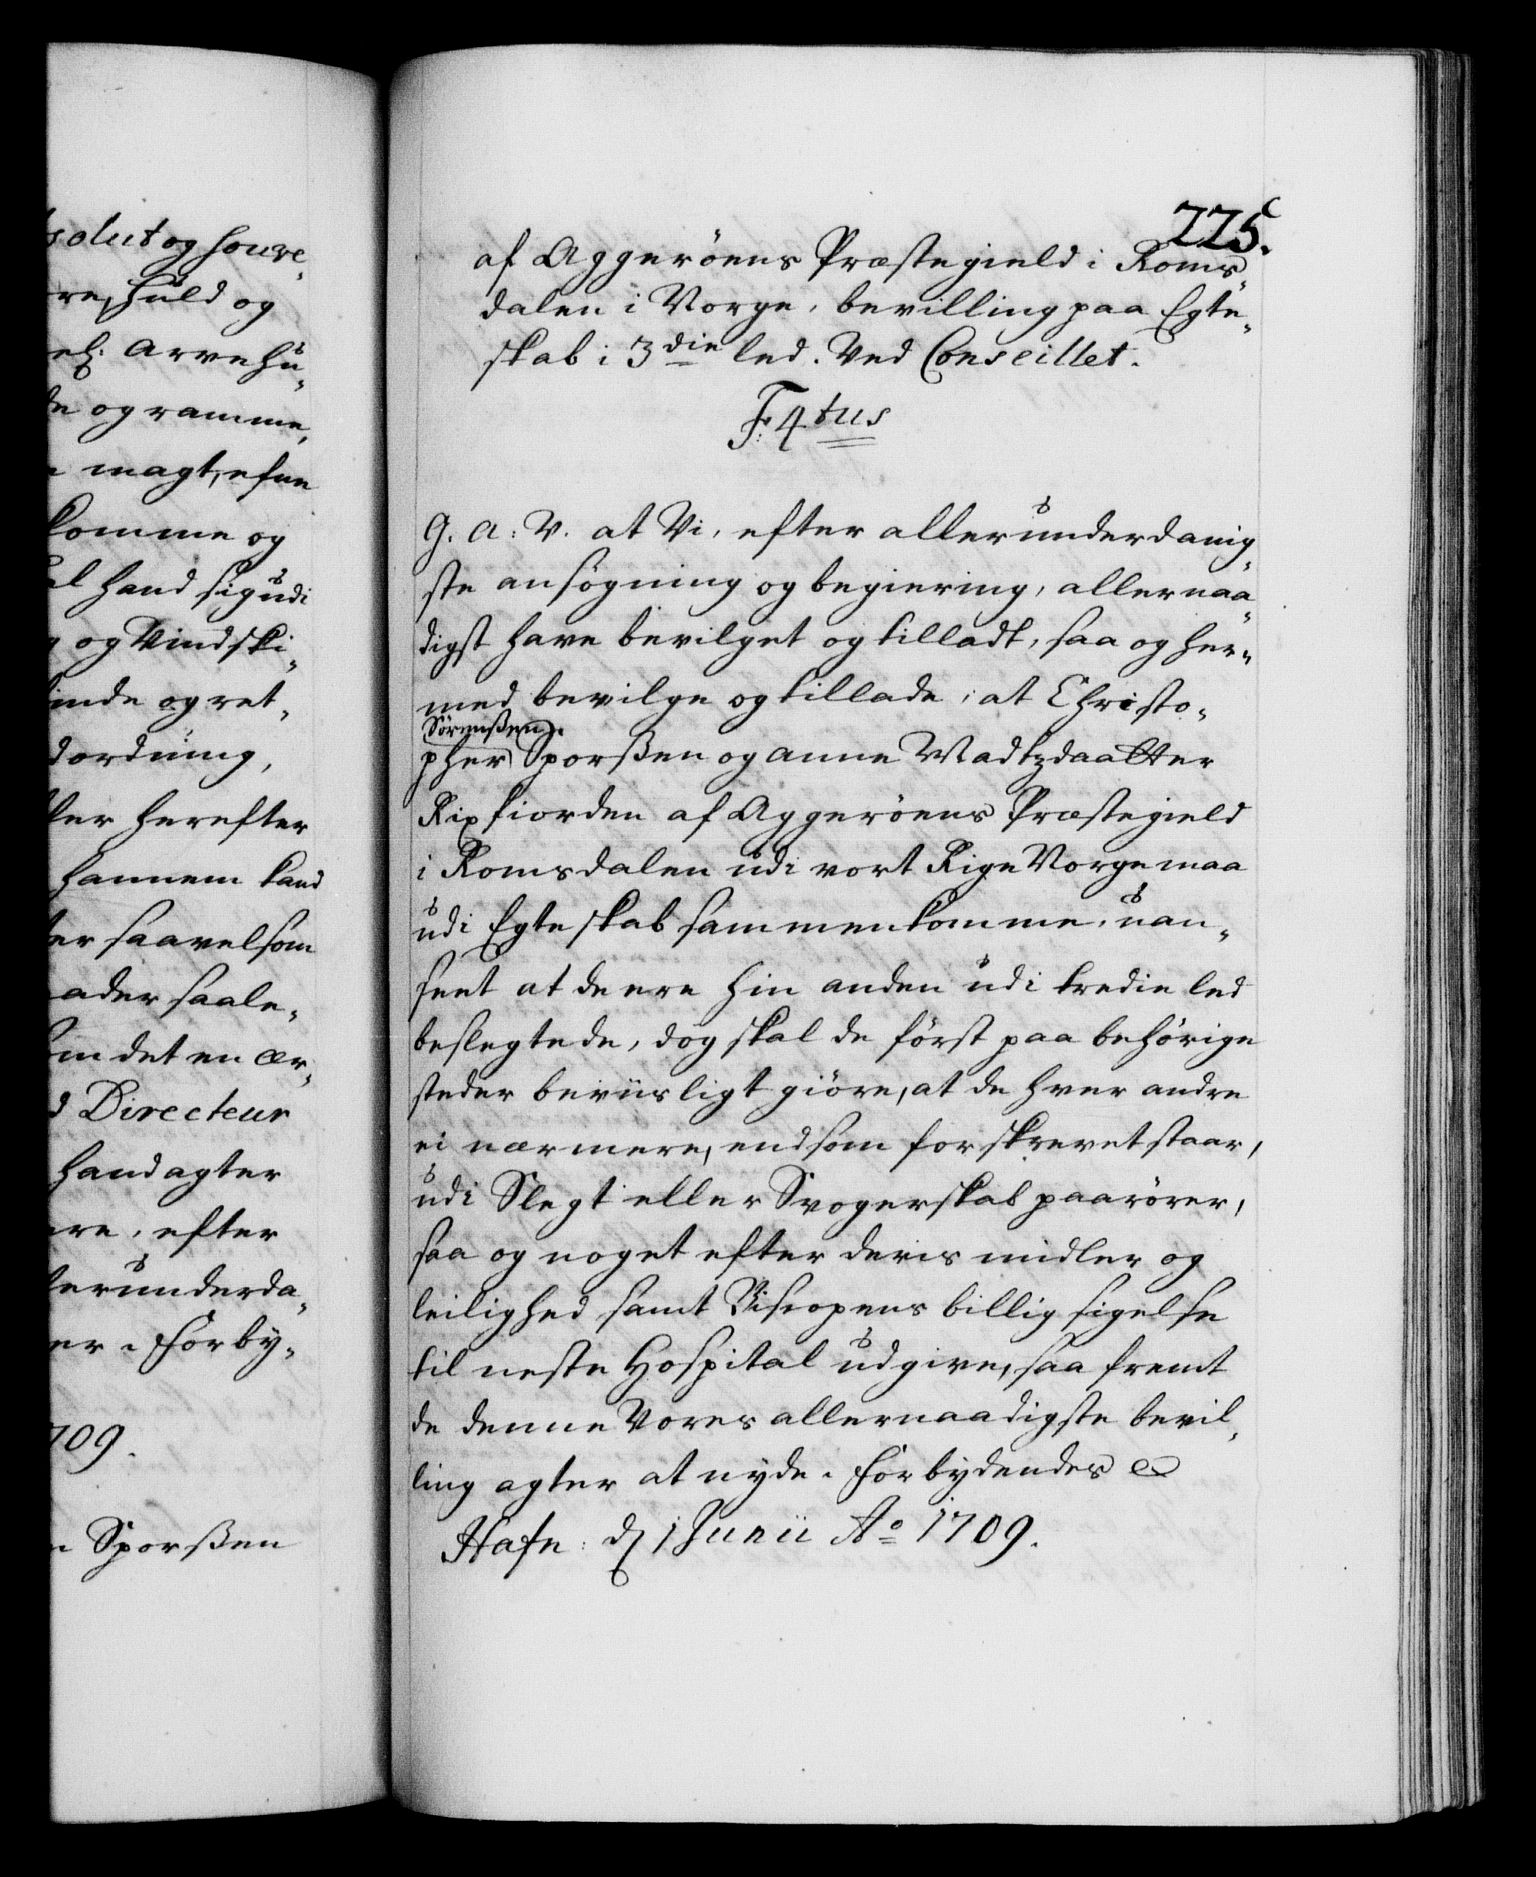 solut og souve¸
re, huld og
el. Arve hu¸
de og ramme,
magt, efne
komme og
al hand sig udi
og Vindski¸
inde og ret¸
dordning,
ler herefter
hannem kand
er saavelsom
ader saale¸
om det en ær¸
d Directeur
hand agter
re, efter
lerunderda¸
er. Forby¸
709.
Sporßen
225.
af Aggerøens Præstegield i Roms¸
dalen i Norge, bevilling paa Egte¸
skab i 3die led. Ved Conseillet.
F. 4tus
G. A: V. at Vi, efter allerunderdanig¸
ste ansøgning og begiering, allernaa¸
digst have bevilget og tilladt, saa og her¸
med bevilge og tillade, at Christo¸
Sörenßen
pher Sporßen og Anne Madtzdaatter
Rixfiorden af Aggerøens Præstegield
i Romsdalen udi vort Rige Norge maa
udi Egteskab sammenkomme, uan¸
seet at de ere hin anden udi tredie led
beslegtede, dog skal de först paa behörige
steder beviisligt giöre, at de hver andre
ei nærmere, end som forskrevet staar,
udi Slegt eller Svogerskab paarörer,
saa og noget efter deris midler og
leilighed samt Biscopens billig sigelse
til neste Hospital udgive, saa fremt
de denne Vores allernaadigste bevil¸
ling agter at nyde. Forbydendes
Hafn: d 1 Junii Ao 1709.